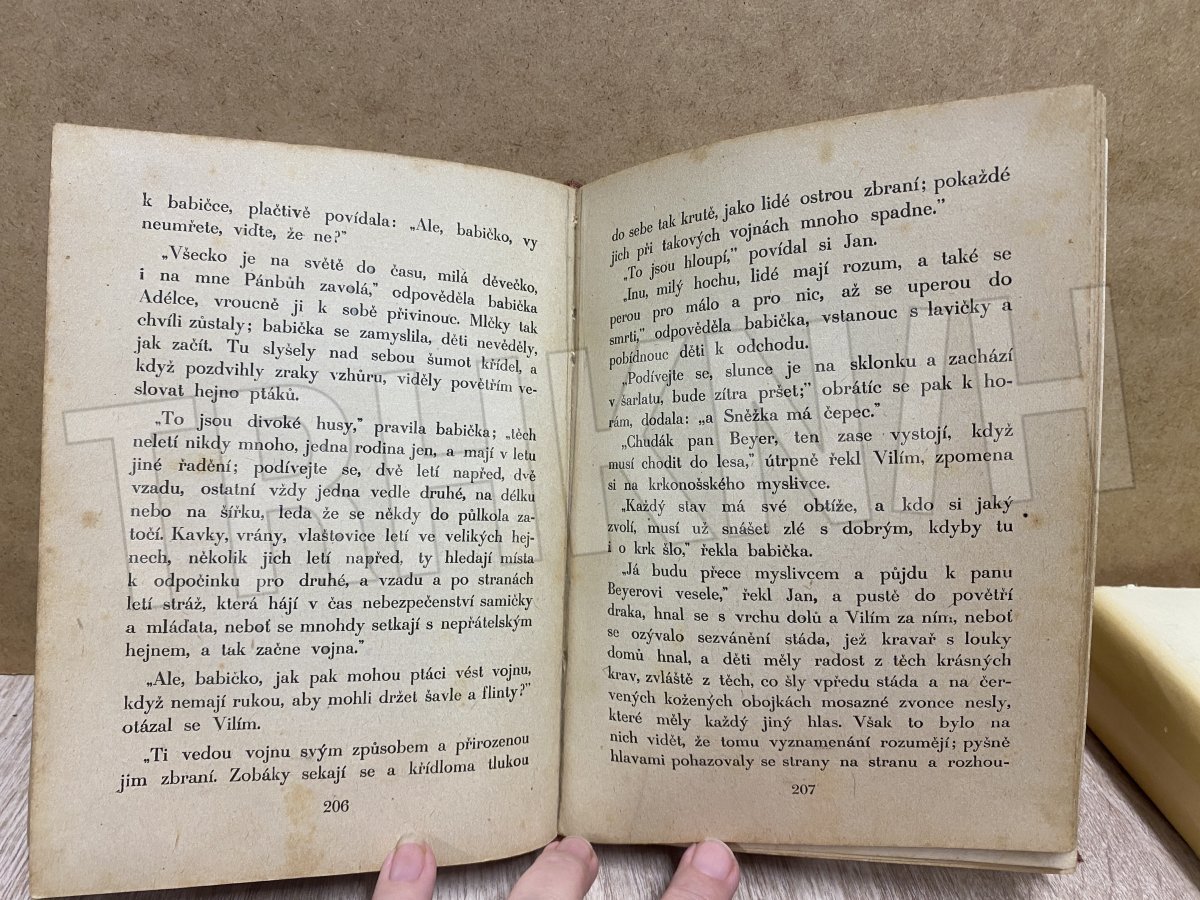 k babičce, plačtivě povídala: „Ale, babičko, vy
neumřete, viďte, že ne?”
„Všecko je na světě do času, milá děvečko,
i na mne Pánbůh zavolá,” odpověděla babička
Adélce, vroucně ji k sobě přivinouc. Mlčky tak
chvíli zůstaly; babička se zamyslila, děti nevěděly,
jak začít. Tu slyšely nad sebou šumot křídel, a
když pozdvihly zraky vzhůru, viděly povětřím ve-
slovat hejno ptáků.
„To jsou divoké husy,” pravila babička; „těch
neletí nikdy mnoho, jedna rodina jen, a mají v letu
jiné řadění; podívejte se, dvě letí napřed, dvě
vzadu, ostatní vždy jedna vedle druhé, na délku
nebo na šířku, leda že se někdy do půlkola za-
točí. Kavky, vrány, vlaštovice letí ve velikých hej-
nech, několik jich letí napřed, ty hledají místa
k odpočinku pro druhé, a vzadu a po stranách
letí stráž, která hájí v čas nebezpečenství samičky
a mláďata, neboť se mnohdy setkají s nepřátelským
hejnem, a tak začne vojna.”
„Ale, babičko, jak pak mohou ptáci vést vojnu,
když nemají rukou, aby mohli držet šavle a flinty?”
otázal se Vilím.
„Ti vedou vojnu svým způsobem a přirozenou
jim zbraní. Zobáky sekají se a křídloma tlukou
206
do sebe tak krutě, jako lidé ostrou zbraní; pokaždé
jich při takových vojnách mnoho spadne.”
„To jsou hloupí,” povídal si Jan.
„Inu, milý hochu, lidé mají rozum, a také se
perou pro málo a pro nic, až se uperou do
smrti,” odpověděla babička, vstanouc s lavičky a
pobídnouc děti k odchodu.
„Podívejte se, slunce je na sklonku a zachází
v šarlatu, bude zítra pršet;” obrátíc se pak k ho-
rám, dodala: „a Sněžka má čepec.”
„Chudák pan Beyer, ten zase vystojí, když
musí chodit do lesa,” útrpně řekl Vilím, zpomena
si na krkonošského myslivce.
„Každý stav má své obtíže, a kdo si jaký
zvolí, musí už snášet zlé s dobrým, kdyby tu
i o krk šlo,” řekla babička.
„Já budu přece myslivcem a půjdu k panu
Beyerovi vesele,” řekl Jan, a pustě do povětří
draka, hnal se s vrchu dolů a Vilím za ním, neboť
se ozývalo sezvánění stáda, jež kravař s louky
domů hnal, a děti měly radost z těch krásných
krav, zvláště z těch, co šly vpředu stáda a na čer-
vených kožených obojkách mosazné zvonce nesly,
které měly každý jiný hlas. Však to bylo na
nich vidět, že tomu vyznamenání rozumějí; pyšně
hlavami pohazovaly se strany na stranu a rozhou-
207
TRHKNIH